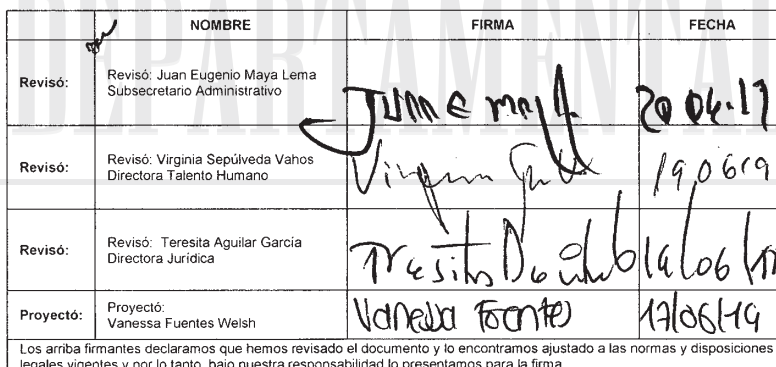 DEPARTAMENTAL
NOMBRE FIRMA FECHA
Revisó: Revisó: Juan Eugenio Maya Lema
Subsecretario Administrativo
Revisó: Revisó: Virginia Sepúlveda Vahos
Directora Talento Humano
Revisó: Revisó: Teresita Aguilar García
Directora Jurídica
Proyectó: Proyectó:
Vanessa Fuentes Welsh Vanessa Fuentes 17/06/19
Los arriba firmantes declaramos que hemos revisado el documento y lo encontramos ajustado a las normas y disposiciones
legales vigentes y por lo tanto, bajo nuestra responsabilidad lo presentamos para la firma.